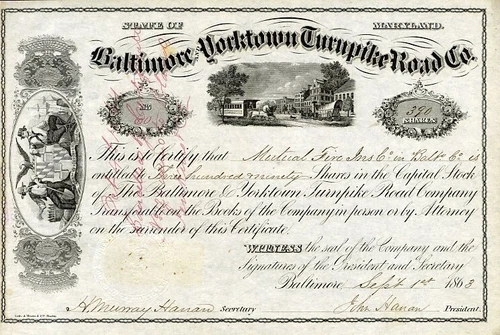 STATE OF MARYLAND.
Baltimore and Yorktown Turnpike Road Co.
No
390
SHARES
This is to Certify that Mutual Fire Ins Co in Balto Co is
entitled to Three hundred ninety Shares in the Capital Stock
of The Baltimore & Yorktown Turnpike Road Company
Transferable on the Books of the Company in person or by Attorney
on the surrender of this Certificate.
WITNESS the seal of the Company and the
Signatures of the President and Secretary
Baltimore Sept 1st 1863
H Murray Hanan Secretary John Hanan President.